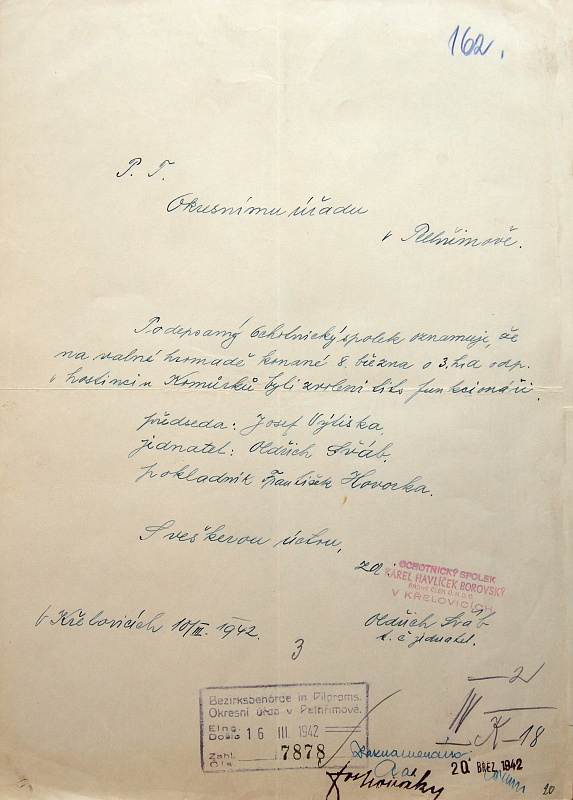 162.
P. T.
Okresnímu úřadu
v Pelhřimově.
Podepsaný Ochotnický spolek oznamuje, že
na valné hromadě konané 8. března o 3. hod odp.
v hostinci u Komůrků byli zvoleni tito funkcionáři.
předseda: Josef Výliska,
jednatel: Oldřich Sváb.
pokladník František Hovorka.
S veškerou úctou,
za:
OCHOTNICKÝ SPOLEK
KAREL HAVLÍČEK BOROVSKÝ
V KŘELOVICÍCH
V Křelovicích 10/III. 1942.
Oldřich Sváb
t. č. jednatel.
3
Bezirksbehörde in Pilgrams.
Okresní úřad v Pelhřimově.
Eing.
Došlo 16 III. 1942
Zahl
Čís. 7878
2
III
K-18
20 BŘEZ. 1942
20